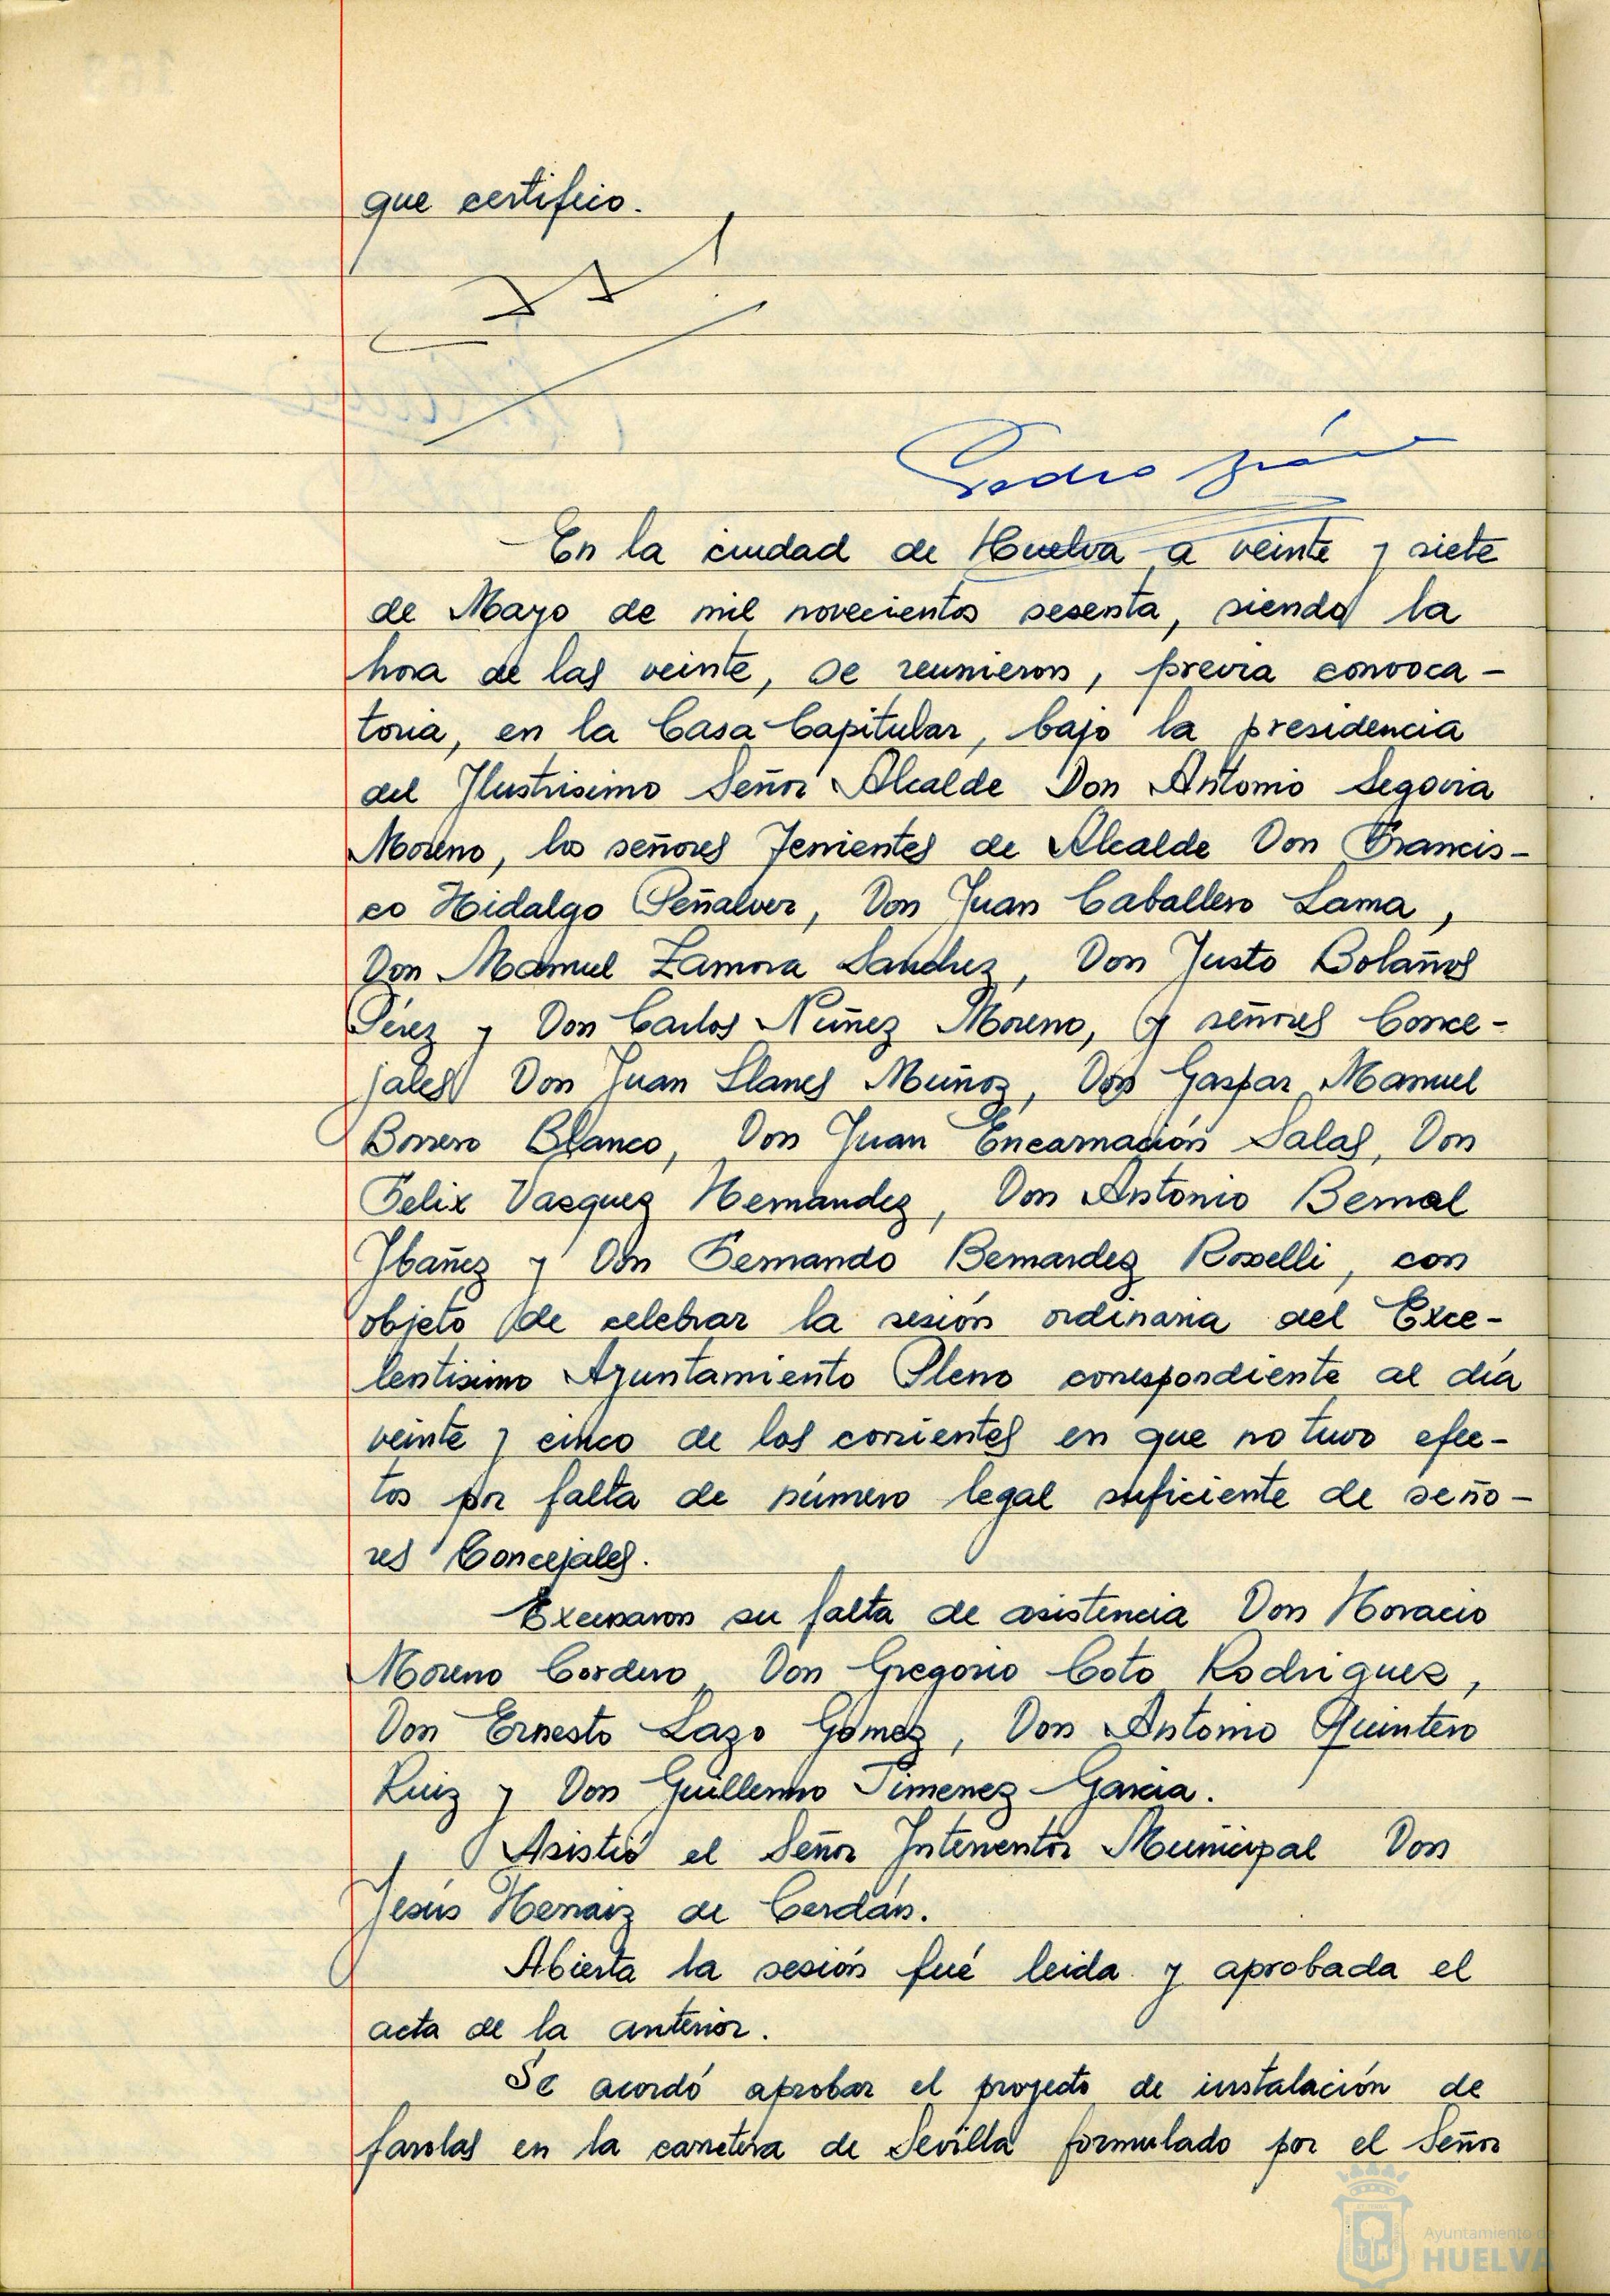 que certifico.
Pedro
En la ciudad de Huelva a veinte y siete
de Mayo de mil novecientos sesenta, siendo la
hora de las veinte, se reunieron, previa convoca-
toria, en la Casa Capitular, bajo la presidencia
del Ilustrisimo Señor Alcalde Don Antonio Segovia
Moreno, los señores Tenientes de Alcalde Don Francis-
co Hidalgo Peñalver, Don Juan Caballero Lama,
Don Manuel Zamora Sanchez, Don Justo Bolaños
Pérez y Don Carlos Núñez Moreno, y señores Conce-
jales Don Juan Llanes Muñoz, Don Gaspar Manuel
Borrero Blanco, Don Juan Encarnación Salas, Don
Felix Vazquez Hernandez, Don Antonio Bernal
Ybañez y Don Fernando Bernardez Rosselli, con
objeto de celebrar la sesión ordinaria del Exce-
lentisimo Ayuntamiento Pleno correspondiente al día
veinte y cinco de los corrientes en que no tuvo efec-
tos por falta de número legal suficiente de seño-
res Concejales.
Excusaron su falta de asistencia Don Horacio
Moreno Cordero, Don Gregorio Coto Rodriguez,
Don Ernesto Lazo Gómez, Don Antonio Quintero
Ruiz y Don Guillermo Jimenez Garcia.
Asistió el Señor Interventor Municipal Don
Jesús Hernaiz de Cerdán.
Abierta la sesión fué leida y aprobada el
acta de la anterior.
Se acordó aprobar el proyecto de instalación de
farolas en la carretera de Sevilla formulado por el Señor
Ayuntamiento de
HUELVA